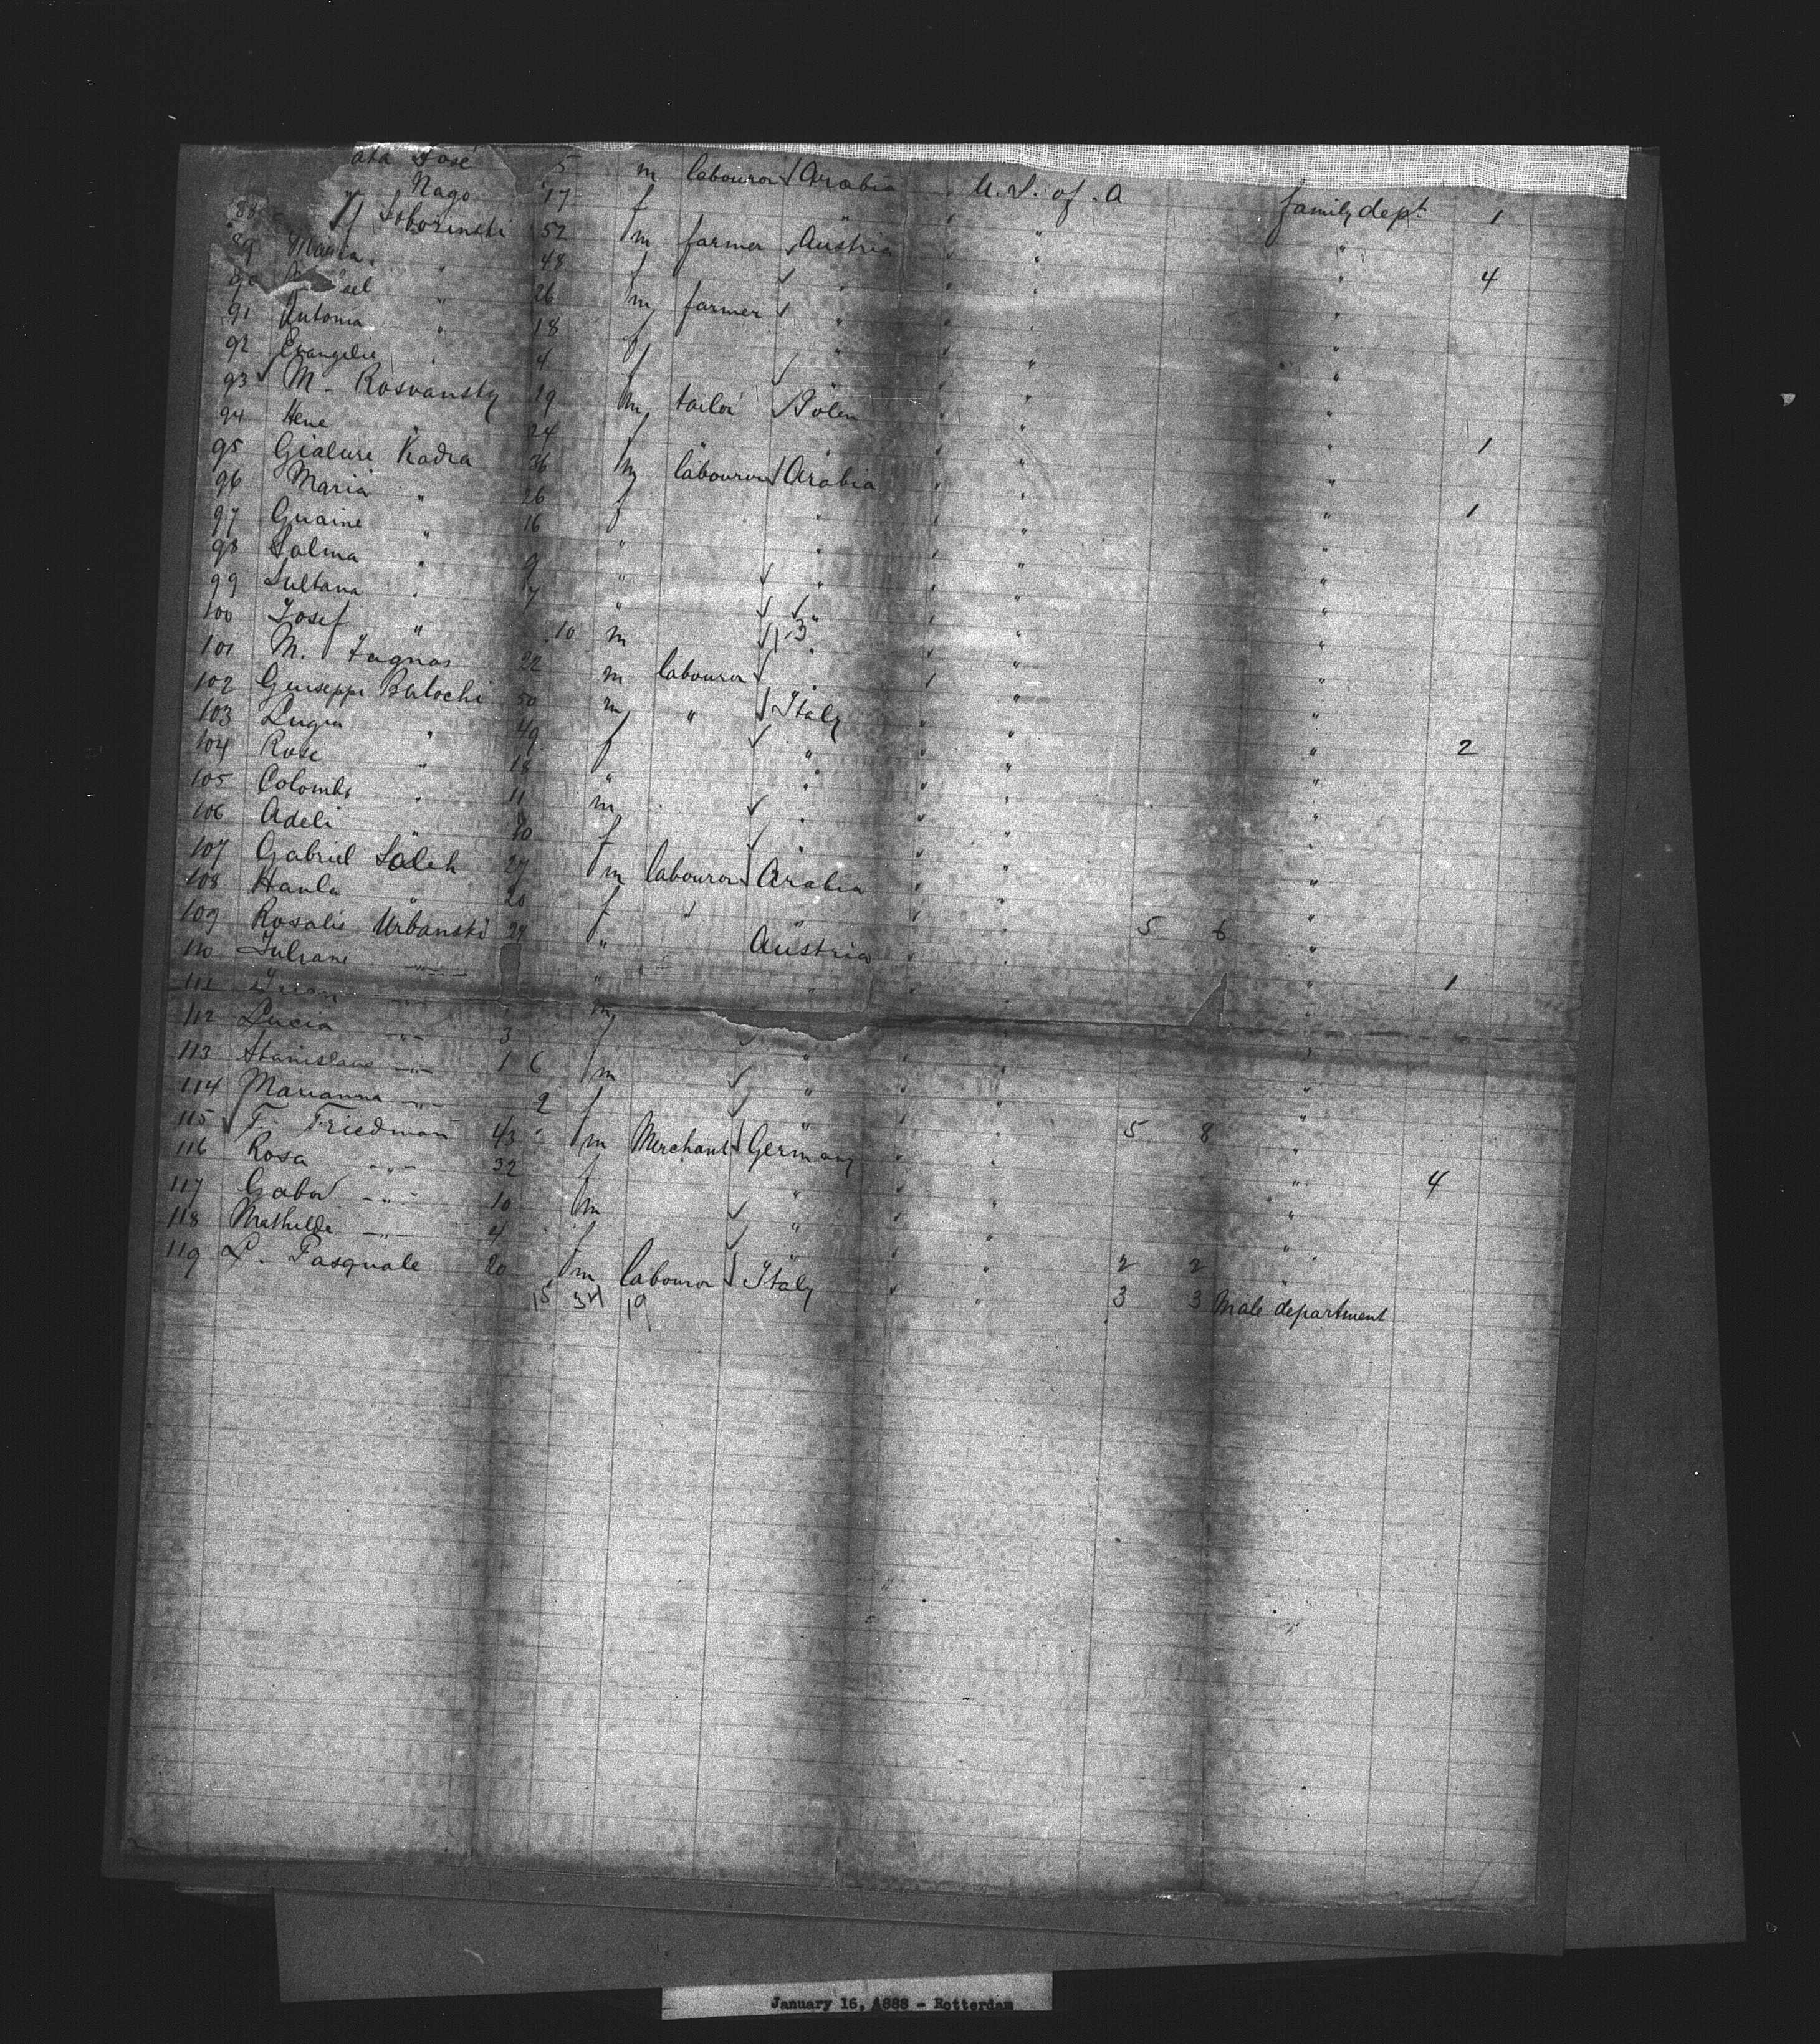 José 5 m labourer Arabia " U.S. of A family dept 1
Nago 17 f " " " "
88 Soborinski 52 m farmer Austria " " " 4
89 Maria " 48 f " " " "
90 " 26 m farmer " " " "
91 Antonia " 18 f " " " "
92 Evangelie " 4 f " " " "
93 M. Rosvansky 19 m tailor Polen " " " 1
94 Hene " 24 f " " " "
95 Gialure Kadra 36 m labourer Arabia " " " 1
96 Maria " 26 f " " " "
97 Guaine " 16 " " " " "
98 Salma " 9 " " " " "
99 Sultana " 7 " " " " "
100 Josef " 10 m 13 " " "
101 M. Fagnas 22 m labourer " " " "
102 Guiseppe Balochi 50 m " Italy " " " 2
103 Lugia " 49 f " " " "
104 Rose " 18 " " " " "
105 Colombo " 11 m " " " "
106 Adeli " 10 f " " " "
107 Gabriel Saleh 27 m labourer Arabia " " "
108 Hanla " 20 f " " " " "
109 Rosalie Urbanski 29 " Austria " " 5 6 " 1
110 Juliane " " " " " "
111 " m " "
112 Lucia " 3 f " " " "
113 Stanislaus " 1 6 m " " " "
114 Marianna " 2 f " " " "
115 F. Friedman 43 m Merchant Germany " " 5 8 " 4
116 Rosa " 32 f " " " "
117 Gabor " 10 m " " " "
118 Mathilde " 4 f " " " 2 2 "
119 L. Pasquale 20 m labourer Italy " " 3 3 Male department
15 34 19
January 16, 1888 - Rotterdam